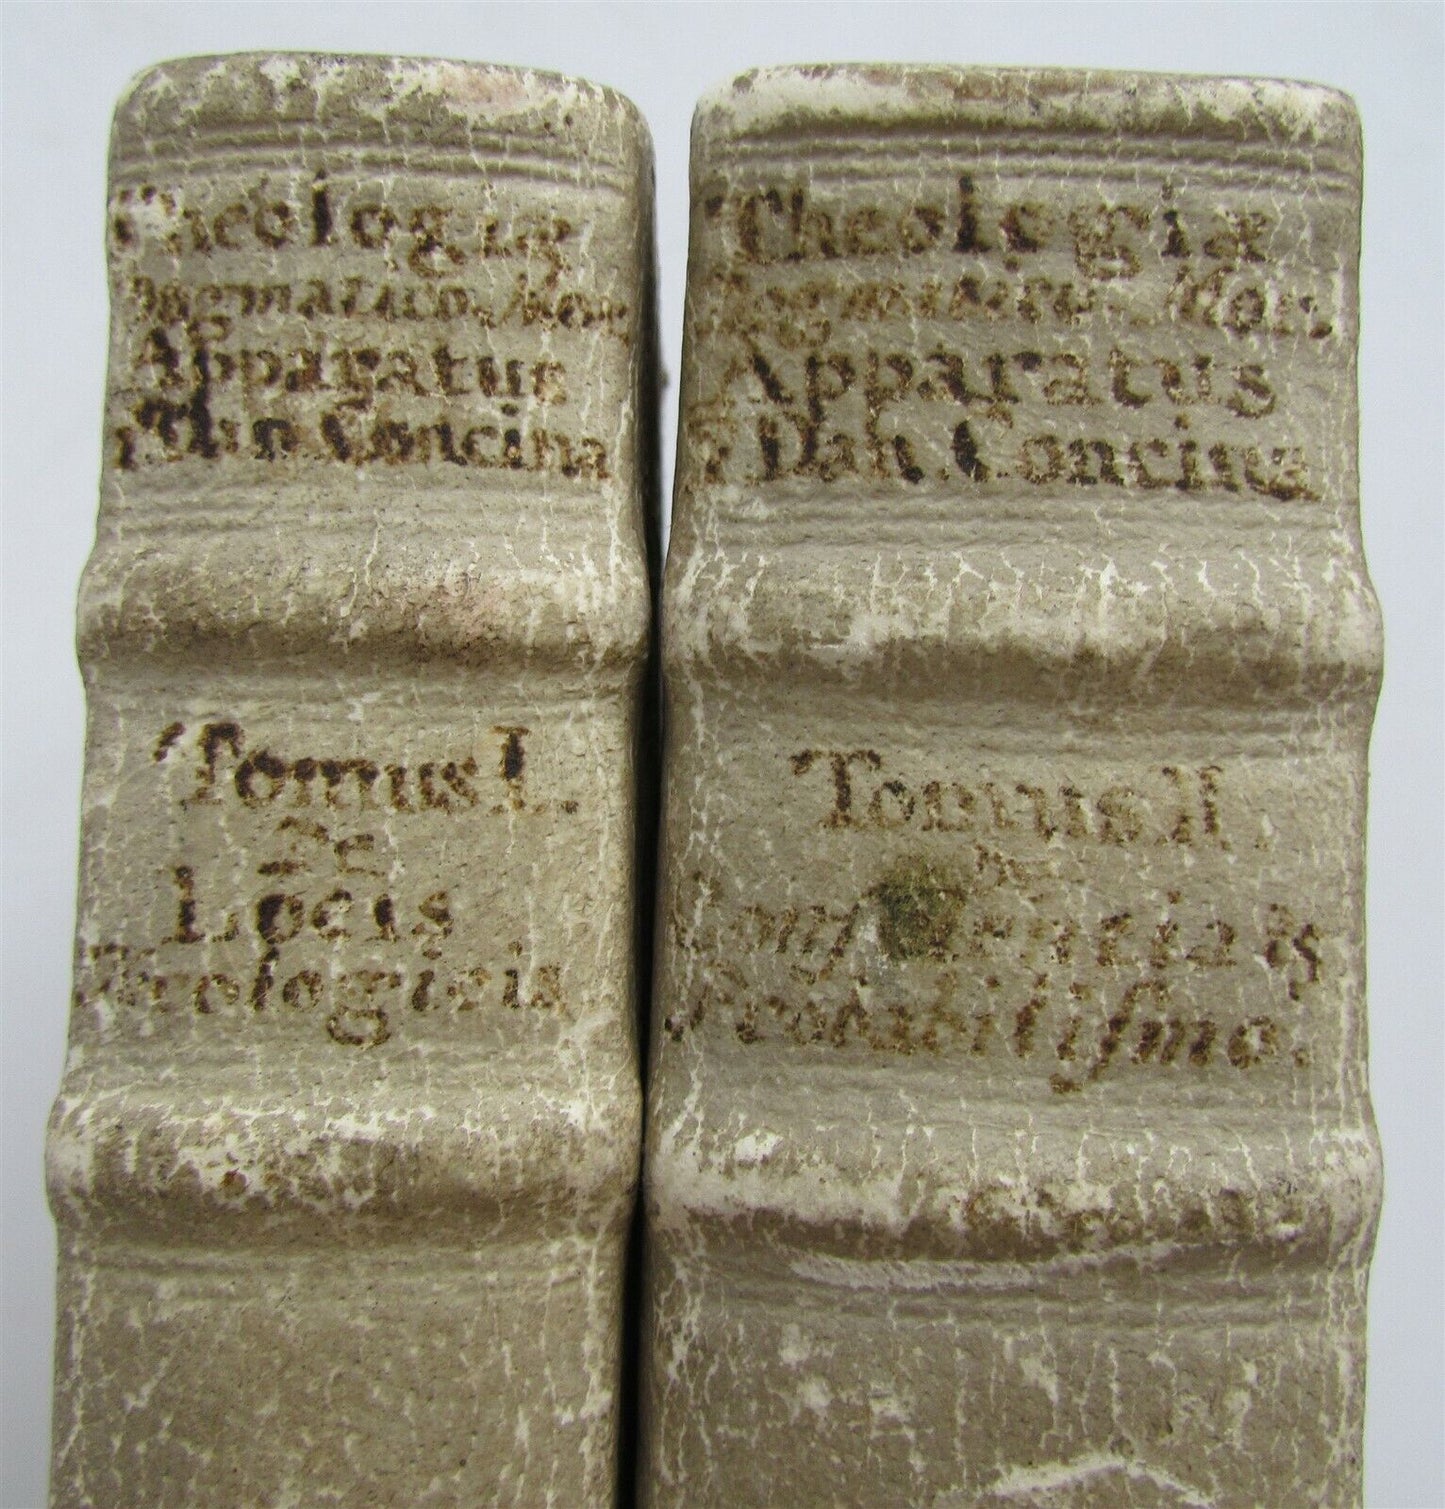 Theologiæ
Dogmatico. Mor.
Apparatus
P. Dan. Concina
Tomus I.
De
Locis
Theologicis
Theologiæ
Dogmatico. Mor.
Apparatus
P. Dan. Concina
Tomus II.
De
&
Probabilismo.